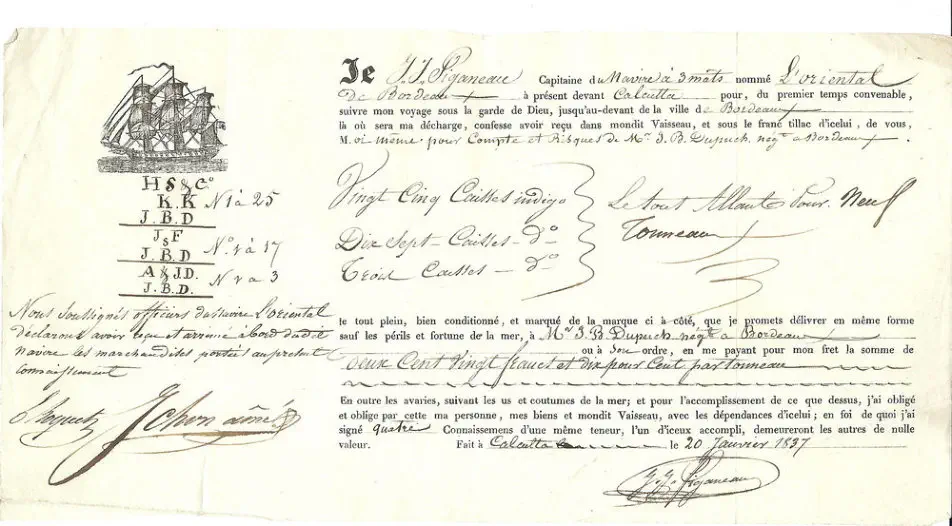 Je J. J. Piganeau Capitaine du Navire à 3 mâts nommé L'oriental
de Bordeau à présent devant Calcutta pour, du premier temps convenable,
suivre mon voyage sous la garde de Dieu, jusqu'au-devant de la ville de Bordeaux
là où sera ma décharge, confesse avoir reçu dans mondit Vaisseau, et sous le franc tillac d'icelui, de vous,
M. oi même pour Compte et Risques de Mr. J. B. Dupuch négt a Bordeaux
HS & Co
K.K N 1 à 25
J.B.D
JsF
J.B.D No 1 à 17
A & J.D. N 1 a 3
J.B.D.
Vingt Cinq Caisses indigo
Dix Sept Caisses do
Trois Caisses do
Le tout Allant Pour Neuf
Tonneaux
Nous Soussignés officiers du Navire L'oriental
déclarons avoir reçu et arrimé à bord dudit
navire les marchandises portées au présent
connaissement
le tout plein, bien conditionné, et marqué de la marque ci à côté, que je promets délivrer en même forme
sauf les périls et fortune de la mer, à Mr J. B. Dupuch négt a Bordeaux
ou à Son ordre, en me payant pour mon fret la somme de
deux Cent Vingt francs et dix pour Cent par tonneau
En outre les avaries, suivant les us et coutumes de la mer; et pour l'accomplissement de ce que dessus, j'ai obligé
et oblige par cette ma personne, mes biens et mondit Vaisseau, avec les dépendances d'icelui; en foi de quoi j'ai
signé quatre Connaissemens d'une même teneur, l'un d'iceux accompli, demeureront les autres de nulle
valeur. Fait à Calcutta le 20 Janvier 1837
J. J. Piganeau